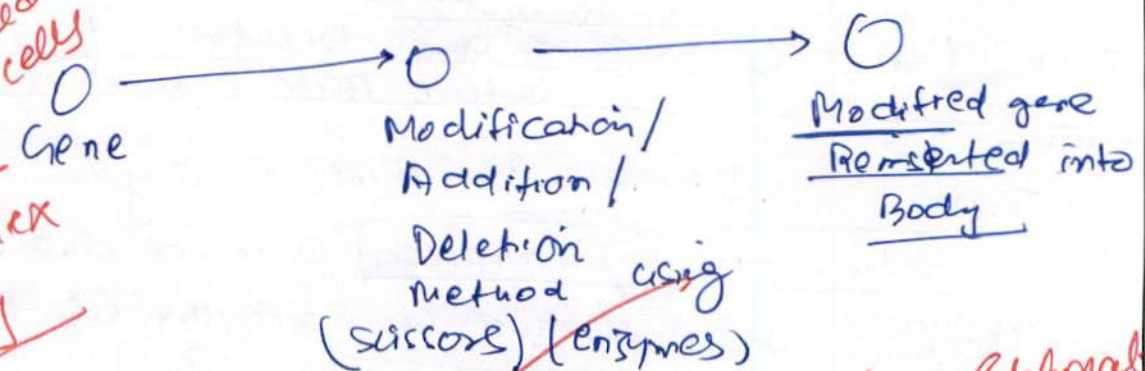 cells
Gene
Modification/
Addition/
Deletion
Method using
(scissors) (enzymes)
Modified gene
Reinserted into
Body